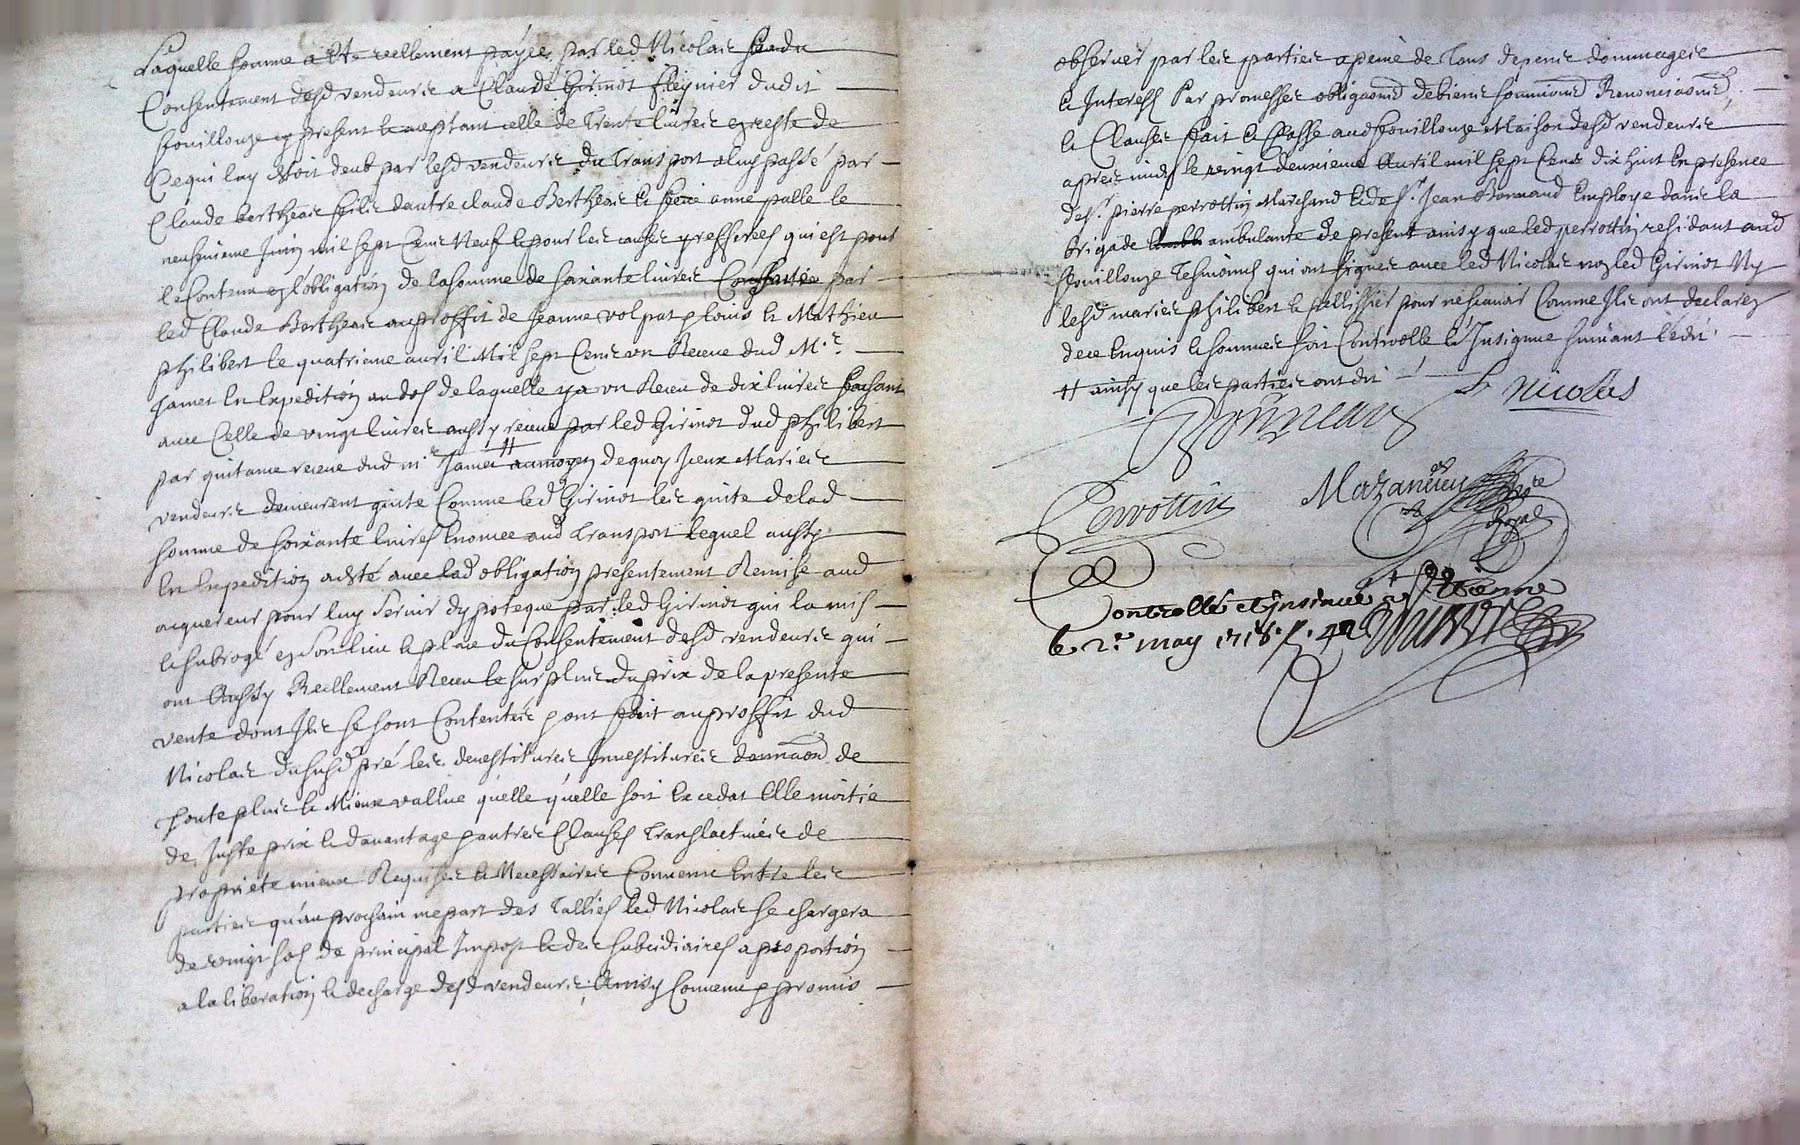 Laquelle somme a été reellement payée par led Nicolas du
Consentement desd vendeurs a Claude Girinot dudit
fouillouze cy present & acceptant celle de trente livres en reste de
Ce qui luy étoit deub par lesd vendeurs du transport a luy passé par
Claude bertheas fils dautre claude Bertheas & anne palle le
neufvieme Juin mil sept Cens Neuf & pour les causes y exprimees qui est pour
le Contenu en lobligation de la somme de soixante livres par
led Claude Bertheas au proffit de Jeanne vol pat p louis & Mathieu
philibert le quatrieme avril Mil sept Cens un Receue dud Mr.
Jamet en Expedition au dos de laquelle y a un Receu de dix livres faisant
avec Celle de vingt livres aussy receue par led Girinot dud philibert
par quitance receue dud mr Jamet au moyen de quoy Iceux Maries
vendeurs demeurent quite Comme led Girinot les quite de lad
somme de soixante livres Enoncee aud Transport lequel aussy
En Expedition a été avec lad obligation presentement Remise aud
acquereur pour luy servir dypoteque par led Girinot qui la mis
& subrogé en son lieu & place du Consentement desd vendeurs qui
ont Aussy Reellement Receu le surplus du prix de la presente
vente dont Ils se sont Contentés & ont fait au proffit dud
Nicolas du susd pré les devestitures Investitures donnaon de
toute plus & Mieux vallue quelle quelle soit Excedat Elle moitie
de Juste prix & davantage & autres Clauses Translactives de
propriete mieux Requises & Necessaires Convenu Entre les
parties qu'au prochain mepart des Tallies led Nicolas se chargera
de vingt sols de principal Impost & des subcidiaires a proportion
a la liberation & decharge desd vendeurs Ainsy Convenu & promis
observer par les parties a peine de tous depens dommages
& Interests Par promesses obligaons de biens soumions Renonciaons
& Clauses fait & Passé aud fouillouze Maison desd vendeurs
apres midy le vingt deuxieme Avril mil sept Cens dix huit En presence
de Sr. pierre perrottin Marchand & de Sr. Jean Bonnaud Employe dans la
Brigade ambulante de present ainsy que led perrottin residant aud
fouillouze Tesmoins qui ont signes avec led Nicolas non led Girinot Ny
lesd maries philibert & pellissier pour ne scavoir Comme Ils ont declarez
de ce Enquis & sommes soit Controlle & Insignue suivant lédit
# ainsy que les parties ont dit
Nicolas
Bonneau
Perrottin
Mazanieu nre
Royal
Controllé et Insinué a St Etienne
le 2e may 1718